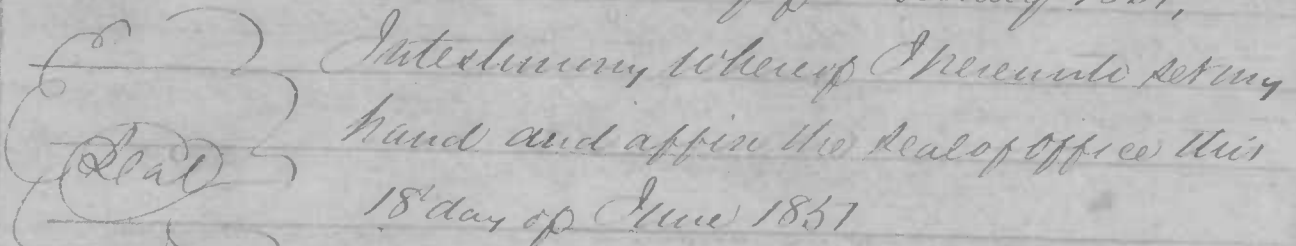 1857,
In testimony whereof I hereunto set my
hand and affix the seal of office this
Seal
18' day of June 1857